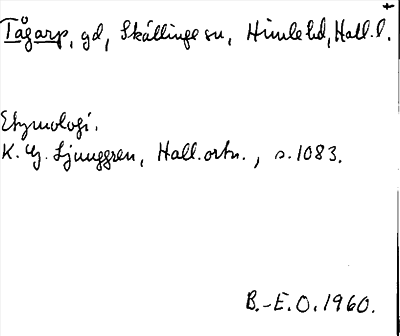 Tågarp, gd, Skällinge sn, Himle hd, Hall. l.
Etymologi.
K. G. Ljunggren, Hall. ortn., s. 1083.
B.-E. O. 1960.